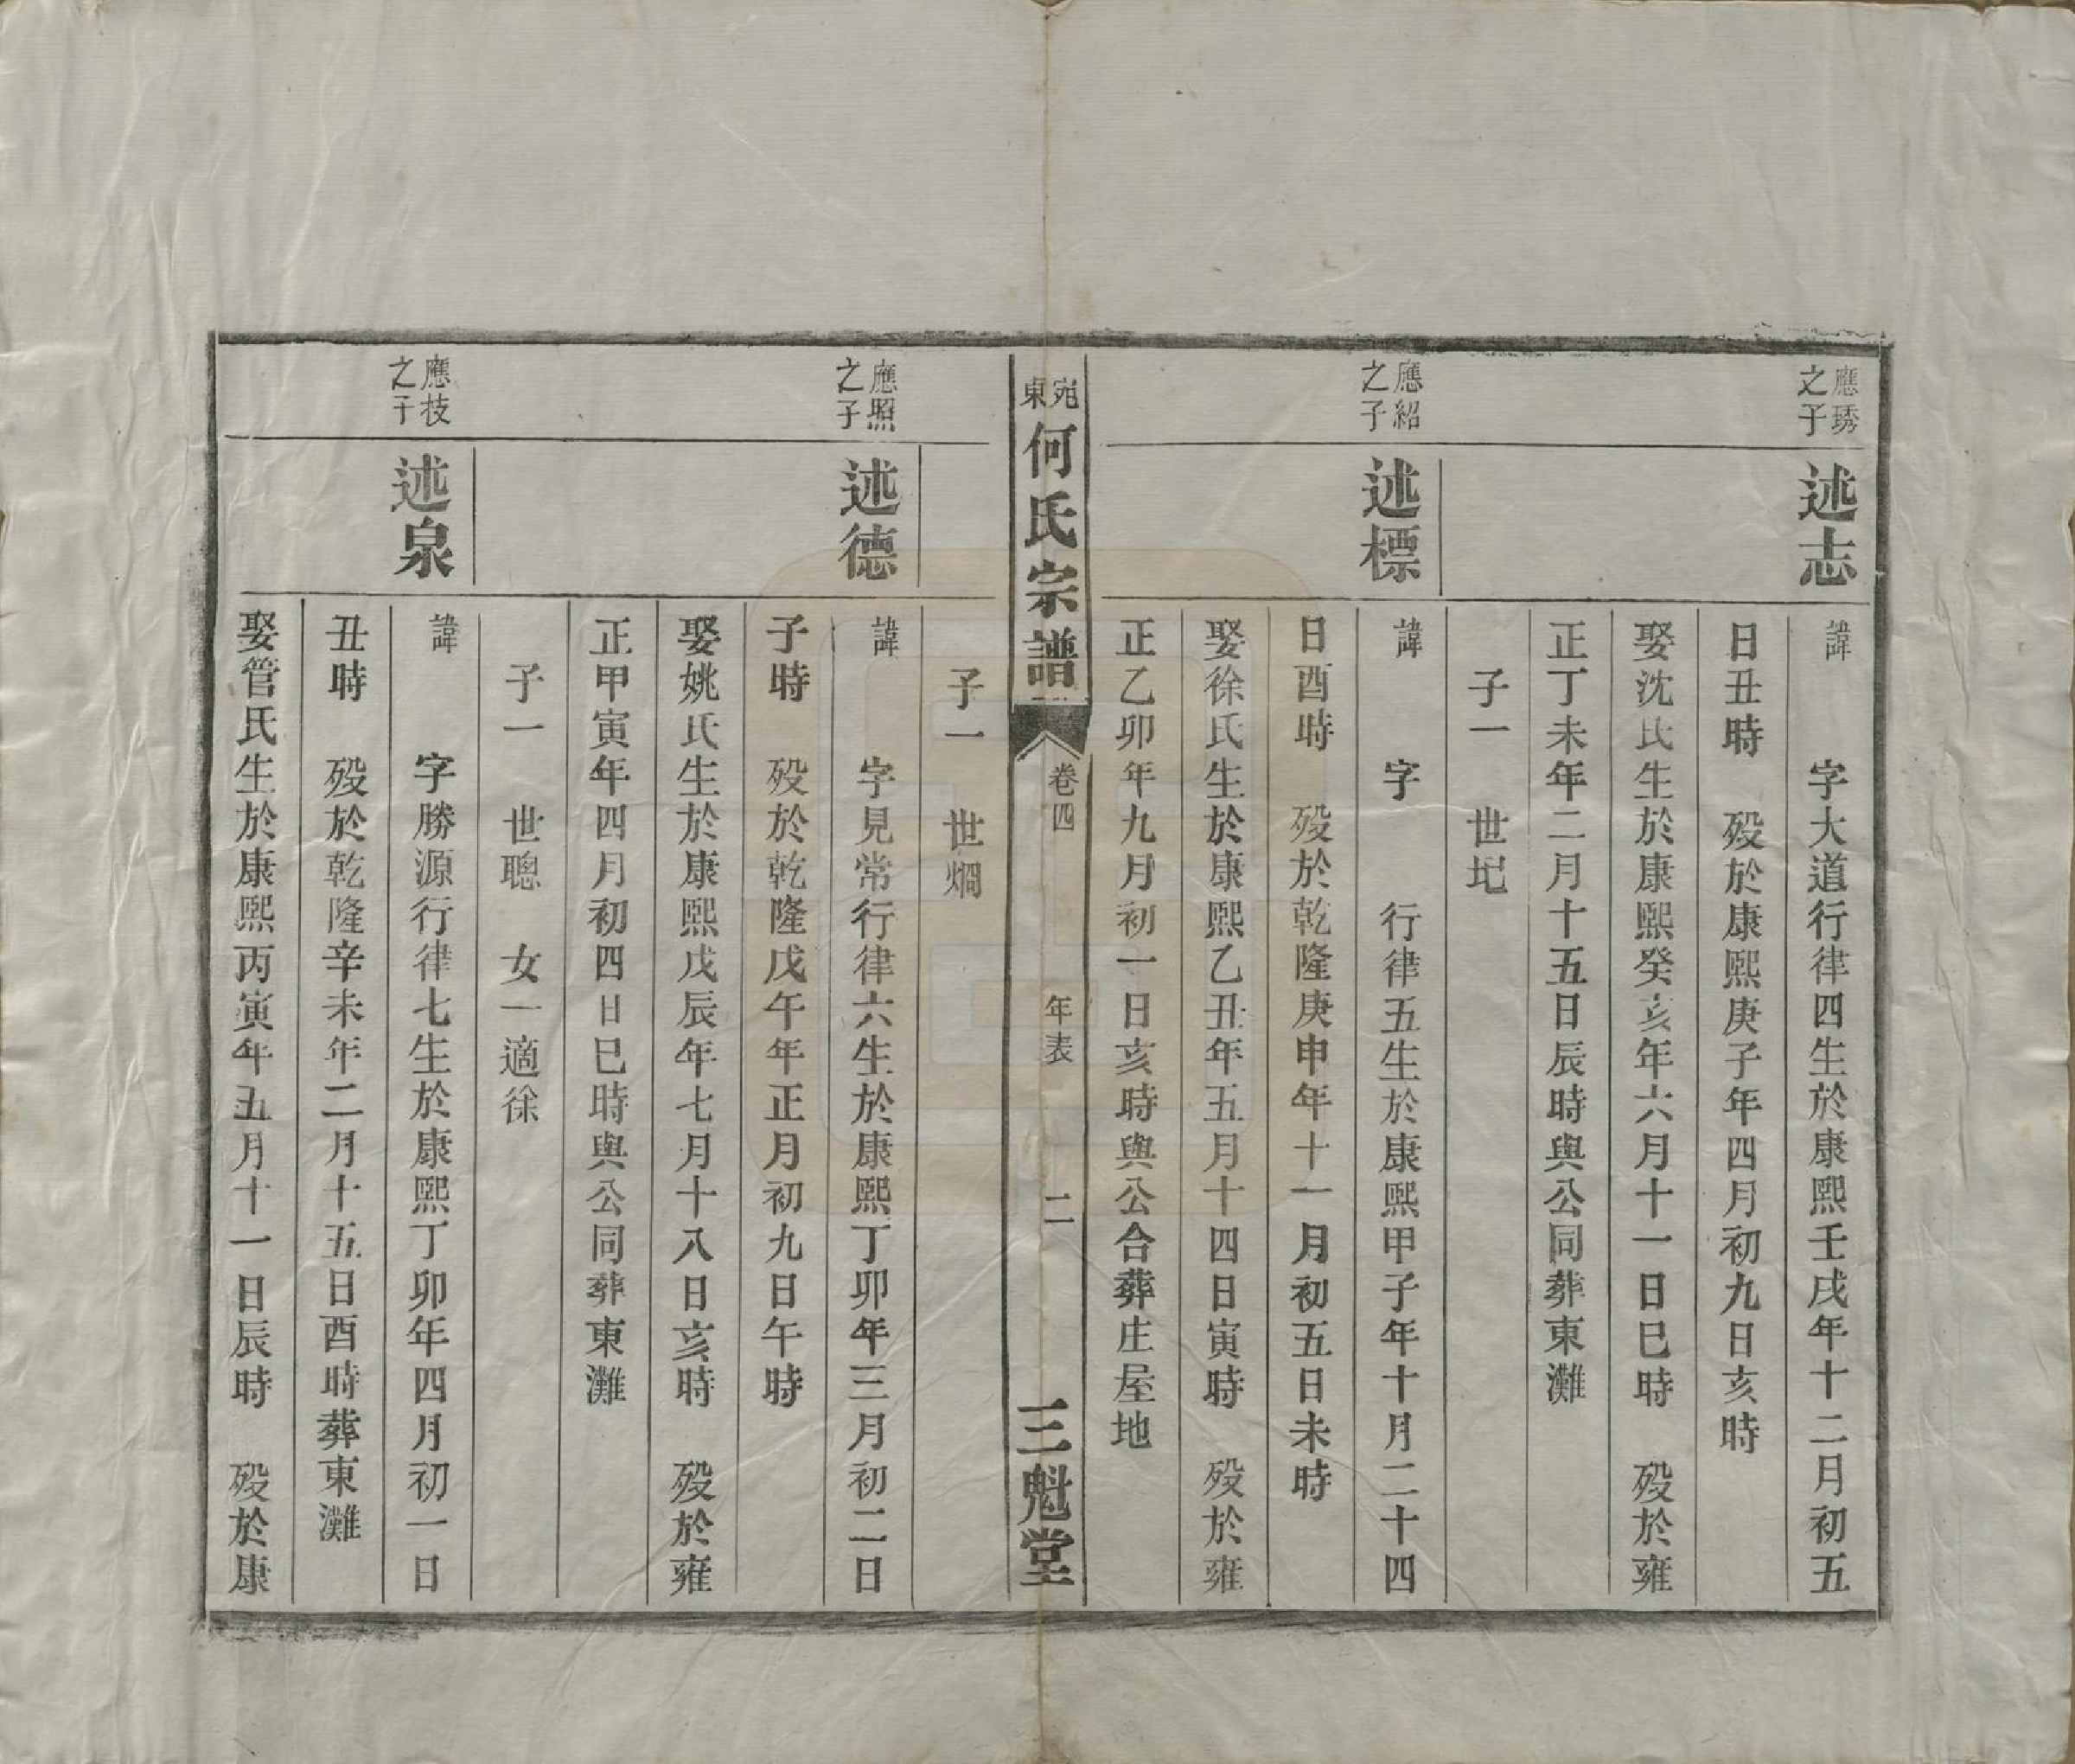 應琇
之子
述志
諱　字大道行律四生於康熙壬戌年十二月初五
日丑時　歿於康熙庚子年四月初九日亥時
娶沈氏生於康熙癸亥年六月十一日巳時　歿於雍
正丁未年二月十五日辰時與公同葬東灘
子一　世圮
應紹
之子
述標
諱　字　行律五生於康熙甲子年十月二十四
日酉時　歿於乾隆庚申年十一月初五日未時
娶徐氏生於康熙乙丑年五月十四日寅時　歿於雍
正乙卯年九月初一日亥時與公合葬庄屋地
宛東
何氏宗譜
卷四
年表
二
三魁堂
子一　世燗
應照
之子
述德
諱　字見常行律六生於康熙丁卯年三月初二日
子時　歿於乾隆戊午年正月初九日午時
娶姚氏生於康熙戊辰年七月十八日亥時　歿於雍
正甲寅年四月初四日巳時與公同葬東灘
子一　世聰　女一適徐
應枝
之子
述泉
諱　字勝源行律七生於康熙丁卯年四月初一日
丑時　歿於乾隆辛未年二月十五日酉時葬東灘
娶管氏生於康熙丙寅年五月十一日辰時　歿於康